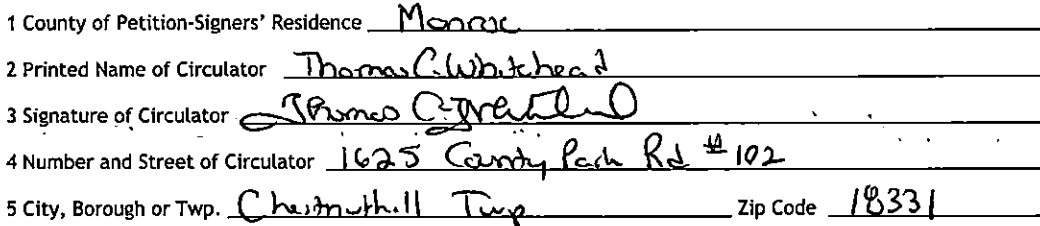 1 County of Petition-Signers' Residence Monroe
2 Printed Name of Circulator Thomas C. Whitehead
3 Signature of Circulator Thomas C. Whitehead
4 Number and Street of Circulator 1625 County Park Rd # 102
5 City, Borough or Twp. Chestnuthill Twp Zip Code 18331